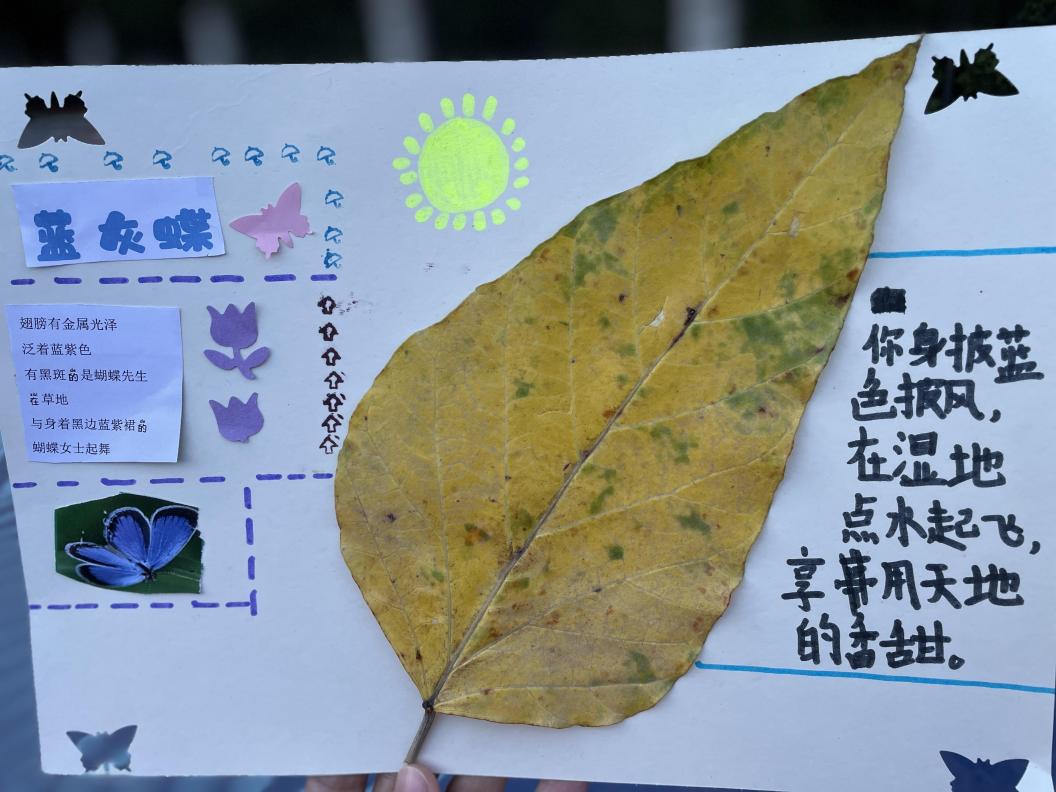 蓝灰蝶
翅膀有金属光泽
泛着蓝紫色
有黑斑的是蝴蝶先生
在草地
与身着黑边蓝紫裙的
蝴蝶女士起舞
你身披蓝
色披风，
在湿地
点水起飞，
享用天地
的香甜。